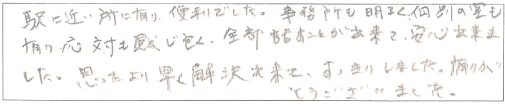 駅に近い所に有り、便利でした。事務所も明るく、個別の室も
有り、応対も感じ良く、全部話すことが出来て、安心出来ま
した。思ったより早く解決出来て、すっきりしました。有りが
とうございました。